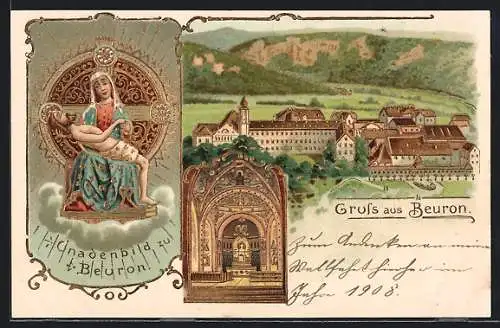 Gnadenbild zu
Beuron.
Gruſs aus Beuron.
Zum Andenken an mein
Wallfahrt hierher im
Jahre 1908.